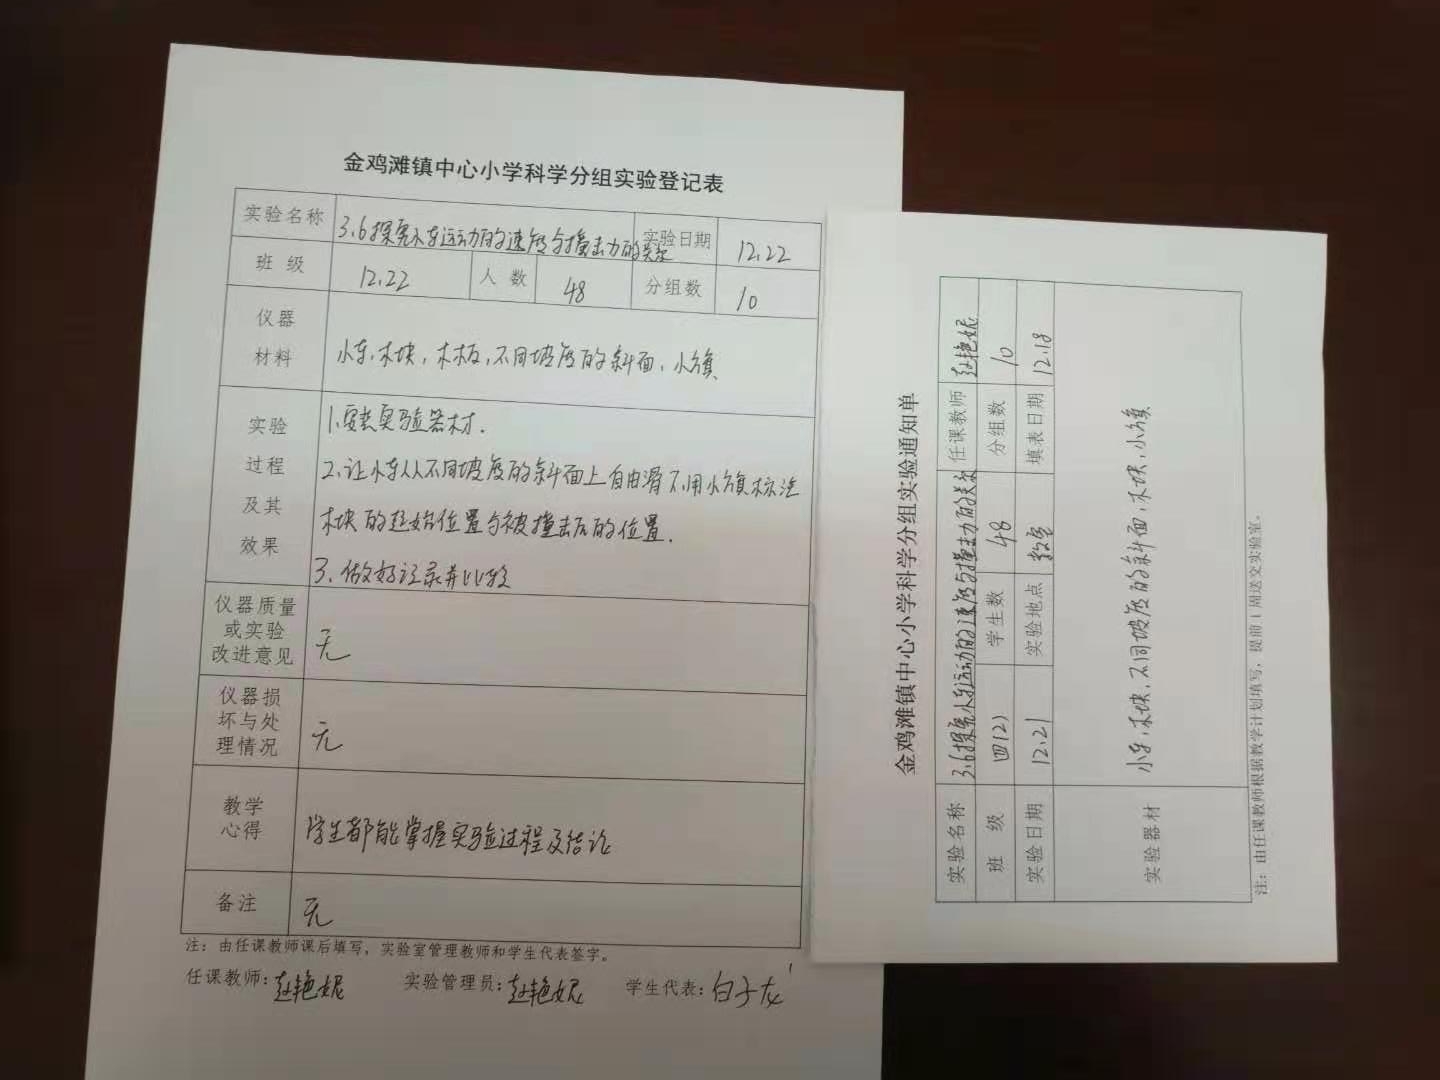 金鸡滩镇中心小学科学分组实验登记表
实验名称 3.6探究小车运动的速度与撞击力的关系 实验日期 12.22
班 级 12.22 人 数 48 分组数 10
仪器
材料
小车,木块,木板,不同坡度的斜面,小旗
实验
过程
及其
效果
1.安装实验器材.
2.让小车从不同坡度的斜面上自由滑下用小旗标注
木块的起始位置与被撞击后的位置.
3.做好记录并比较
仪器质量
或实验
改进意见
无
仪器损
坏与处
理情况
无
教学
心得
学生都能掌握实验过程及结论
备注 无
注：由任课教师课后填写，实验室管理教师和学生代表签字。
任课教师:赵艳妮 实验管理员:赵艳妮 学生代表:白子龙
金鸡滩镇中心小学科学分组实验通知单
实验名称 3.6探究小车运动的速度与撞击力的关系 任课教师 赵艳妮
班 级 四(2) 学生数 48 分组数 10
实验日期 12.21 实验地点 教室 填表日期 12.18
实验器材 小车,木块,不同坡度的斜面,木块,小旗
注：由任课教师根据教学计划填写，提前1周送交实验室。